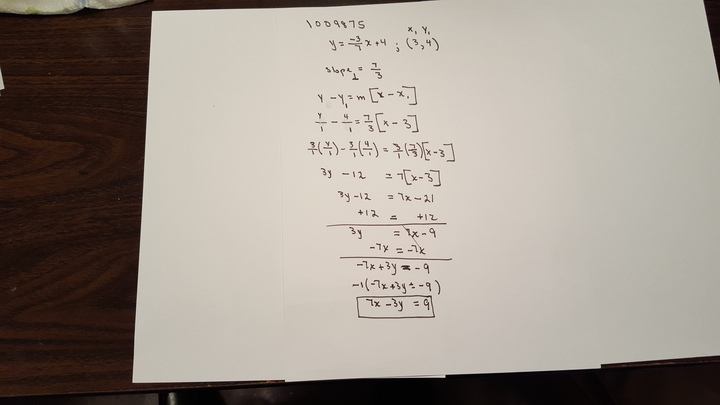 1009875
x₁ y₁
y = -3/7 x + 4 ; (3,4)
slope⊥ = 7/3
y - y₁ = m[x - x₁]
y/1 - 4/1 = 7/3[x - 3]
3/1(y/1) - 3/1(4/1) = 3/1(7/3)[x - 3]
3y - 12 = 7[x - 3]
3y - 12 = 7x - 21
+12 = +12
3y = 7x - 9
-7x = -7x
-7x + 3y = -9
-1(-7x + 3y = -9)
7x - 3y = 9